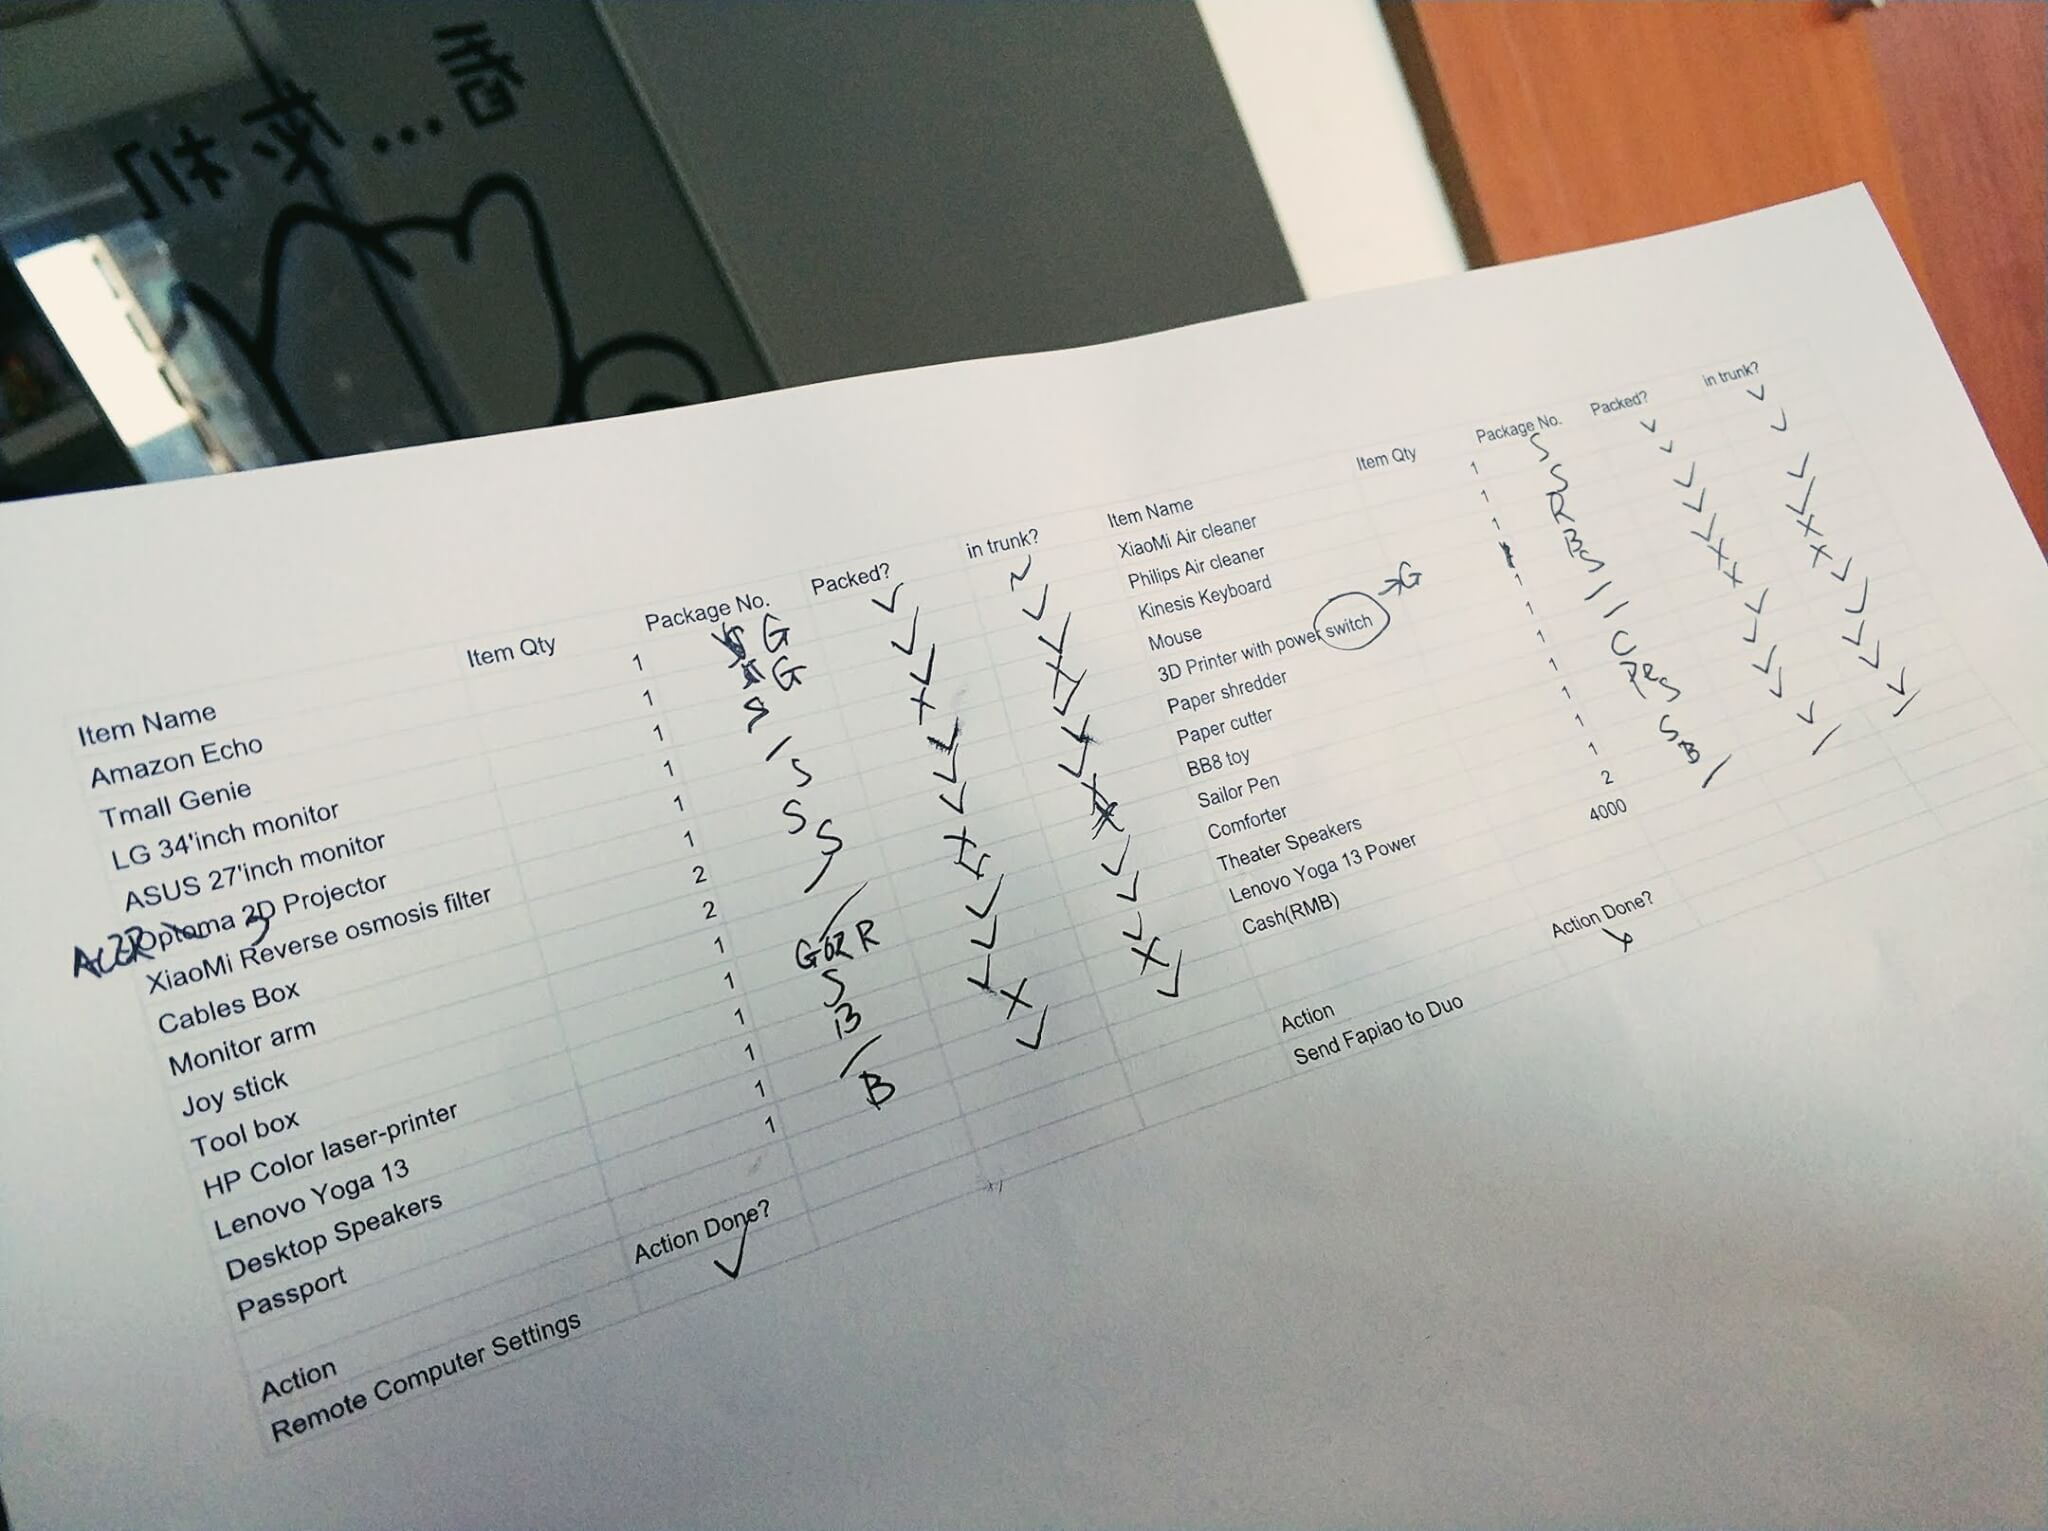 Item Name Item Qty Package No. Packed? in trunk?
Amazon Echo 1 G ✓
Tmall Genie 1 G ✓ ✓
LG 34'inch monitor 1 S ✓ ✓
ASUS 27'inch monitor 1 / X X
ACER Optoma 3D Projector 1 S ✓ ✓
XiaoMi Reverse osmosis filter 1 S ✓ ✓
Cables Box 2 S ✓ ✓
Monitor arm 2 / X X
Joy stick 1 /
Tool box 1 G ✓ ✓
HP Color laser-printer 1 S ✓ ✓
Lenovo Yoga 13 1 B ✓ ✓
Desktop Speakers 1 / X X
Passport 1 B ✓ ✓
Action Action Done?
Remote Computer Settings ✓
Item Name Item Qty Package No. Packed? in trunk?
XiaoMi Air cleaner 1 S ✓ ✓
Philips Air cleaner 1 S ✓ ✓
Kinesis Keyboard 1 R ✓ ✓
Mouse B ✓ ✓
3D Printer with power switch →G 1 S ✓
Paper shredder 1 / X X
Paper cutter 1 / X X
BB8 toy 1 C ✓ ✓
Sailor Pen 1 ✓ ✓
Comforter 1 S ✓ ✓
Theater Speakers 1 S ✓ ✓
Lenovo Yoga 13 Power 2 B ✓ ✓
Cash(RMB) 4000 / / /
Action Action Done?
Send Fapiao to Duo